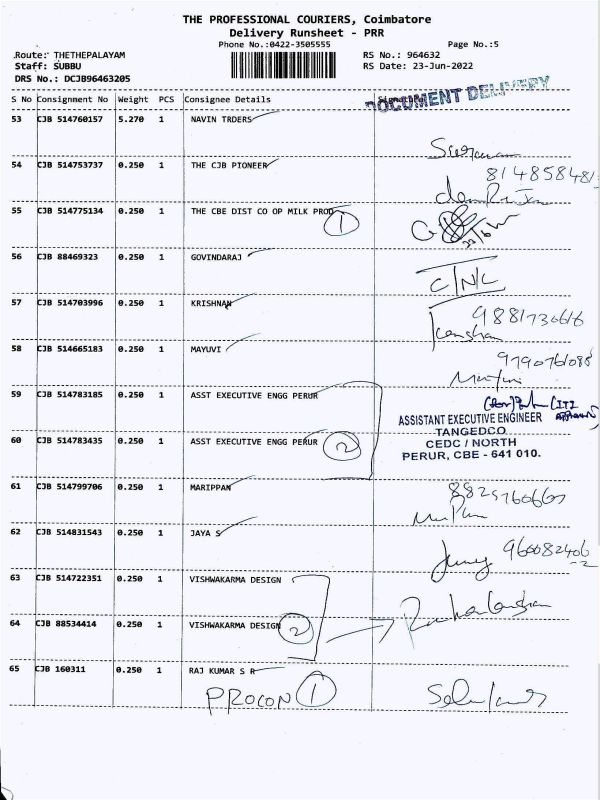 THE PROFESSIONAL COURIERS, Coimbatore
Delivery Runsheet - PRR
Phone No.:0422-3505555 Page No.:5
Route: THETHEPALAYAM RS No.: 964632
Staff: SUBBU RS Date: 23-Jun-2022
DRS No.: DCJB96463205
S No Consignment No Weight PCS Consignee Details
DOCUMENT DELIVERY
53 CJB 514760157 5.270 1 NAVIN TRDERS
54 CJB 514753737 0.250 1 THE CJB PIONEER
55 CJB 514775134 0.250 1 THE CBE DIST CO OP MILK PROD
1
56 CJB 88469323 0.250 1 GOVINDARAJ
C/N/L
57 CJB 514703996 0.250 1 KRISHNAN
58 CJB 514665183 0.250 1 MAYUVI
59 CJB 514783185 0.250 1 ASST EXECUTIVE ENGG PERUR
ASSISTANT EXECUTIVE ENGINEER
TANGEDCO
60 CJB 514783435 0.250 1 ASST EXECUTIVE ENGG PERUR
2
CEDC / NORTH
PERUR, CBE - 641 010.
61 CJB 514799706 0.250 1 MARIPPAN
62 CJB 514831543 0.250 1 JAYA S
63 CJB 514722351 0.250 1 VISHWAKARMA DESIGN
64 CJB 88534414 0.250 1 VISHWAKARMA DESIGN
2
65 CJB 160311 0.250 1 RAJ KUMAR S R
PROCON 1